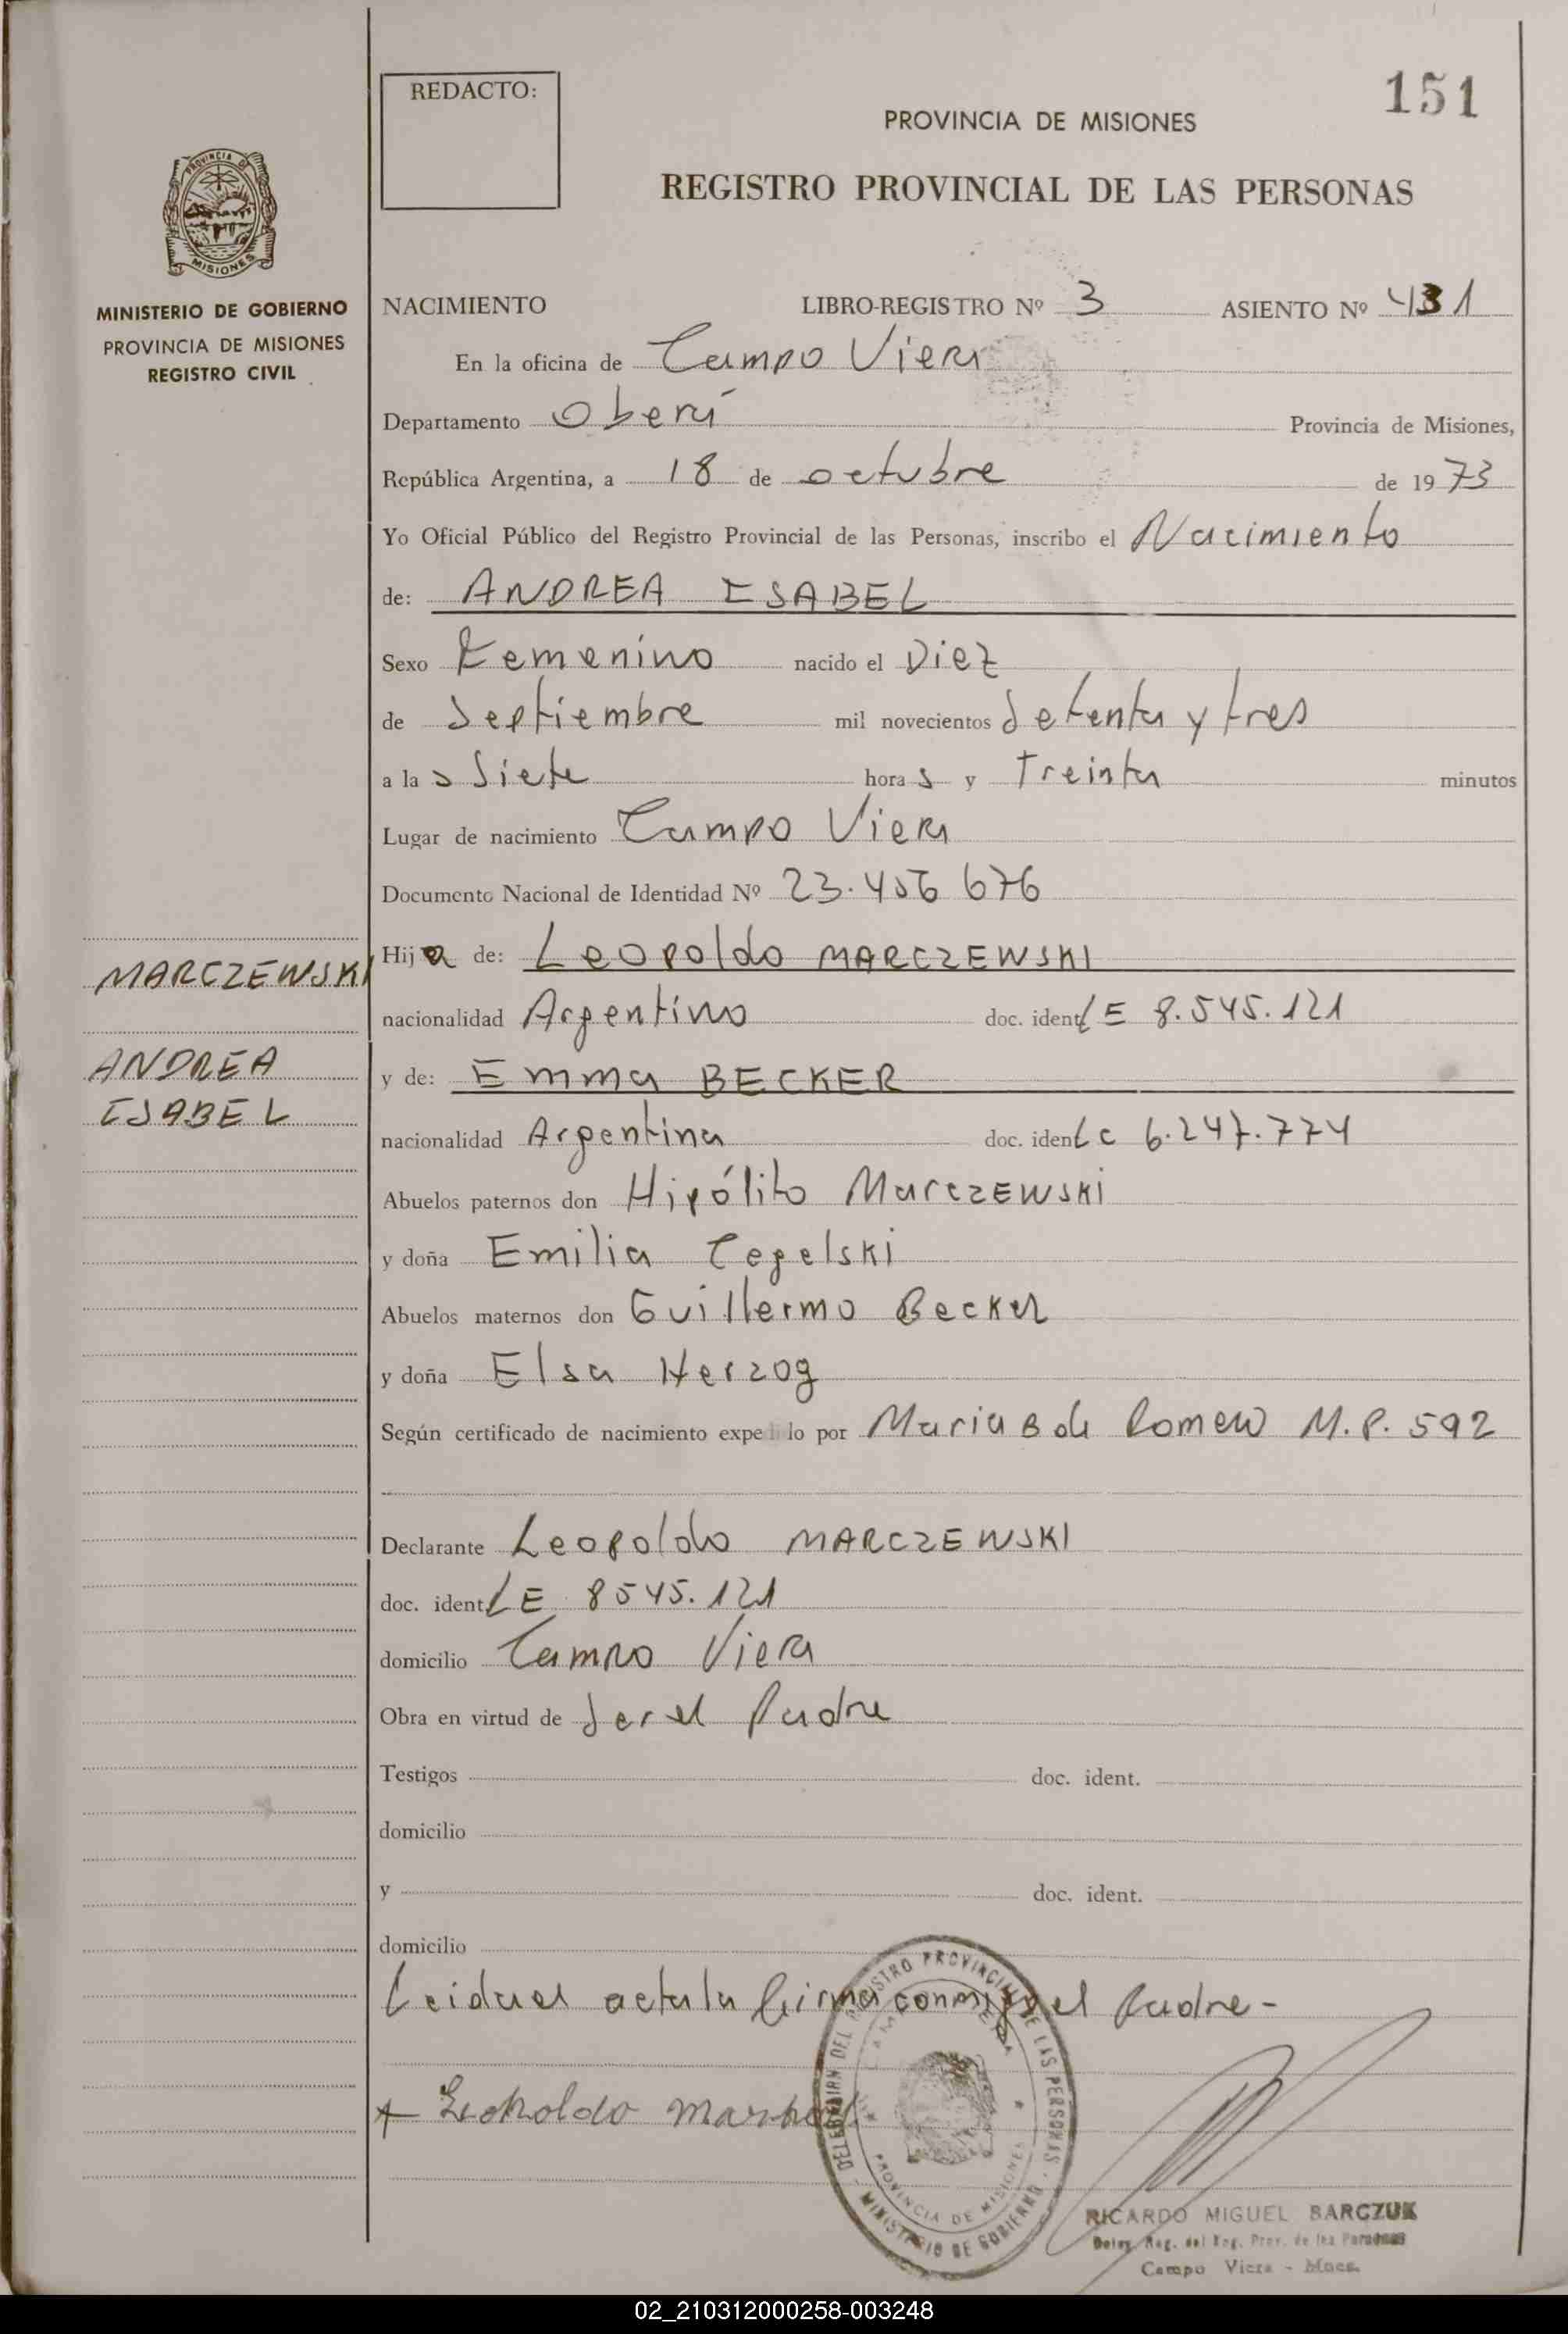 REDACTO:
151
PROVINCIA DE MISIONES
REGISTRO PROVINCIAL DE LAS PERSONAS
PROVINCIA DE
MISIONES
MINISTERIO DE GOBIERNO
PROVINCIA DE MISIONES
REGISTRO CIVIL
NACIMIENTO LIBRO-REGISTRO Nº 3 ASIENTO Nº 431
En la oficina de Campo Viera
Departamento Oberá Provincia de Misiones,
República Argentina, a 18 de octubre de 1973
Yo Oficial Público del Registro Provincial de las Personas, inscribo el Nacimiento
de: ANDREA ISABEL
Sexo Femenino nacido el Diez
de Septiembre mil novecientos Setenta y tres
a la s Siete hora s y Treinta minutos
Lugar de nacimiento Campo Viera
Documento Nacional de Identidad Nº 23.456 676
Hija de: Leopoldo MARCZEWSKI
MARCZEWSKI
nacionalidad Argentino doc. ident LE 8.545.121
ANDREA
ISABEL
y de: Emma BECKER
nacionalidad Argentina doc. ident LC 6.247.774
Abuelos paternos don Hipólito MarczEWSKI
y doña Emilia Cegelski
Abuelos maternos don Guillermo Becker
y doña Elsa Herzog
Según certificado de nacimiento expe lo por Maria B de Romero M.P. 592
Declarante Leopoldo MARCZEWSKI
doc. ident. LE 8545.121
domicilio Campo Viera
Obra en virtud de Ser el Padre
Testigos doc. ident.
domicilio
y doc. ident.
domicilio
Leida el acta la firma conmigo el Padre-
Leopoldo
DEL REGISTRO PROVINCIAL DE LAS PERSONAS - MINISTERIO DE GOBIERNO
CAMPO VIERA
PROVINCIA DE MISIONES
RICARDO MIGUEL BARCZUK
Deleg. Reg. del Reg. Prov. de las Personas
Campo Viera - Mnes.
02_210312000258-003248